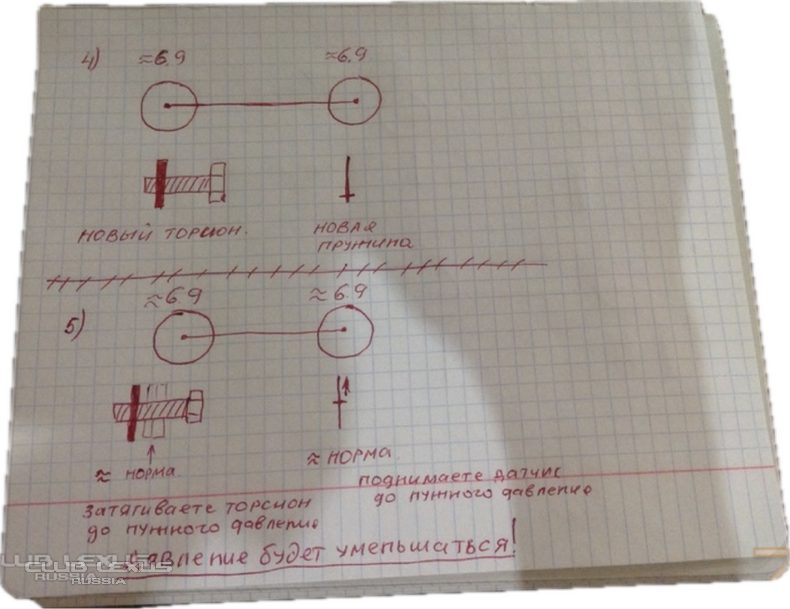 4) ≈6.9 ≈6.9
НОВЫЙ ТОРСИОН. НОВАЯ
ПРУЖИНА
≈6.9 ≈6.9
5)
≈ НОРМА. ≈ НОРМА.
ЗАТЯГИВАЕТЕ ТОРСИОН
ДО НУЖНОГО ДАВЛЕНИЯ
ПОДНИМАЕТЕ ДАТЧИК
ДО НУЖНОГО ДАВЛЕНИЯ
ДАВЛЕНИЕ БУДЕТ УМЕНЬШАТЬСЯ!
CLUB LEXUS
RUSSIA
CLUB LEXUS
RUSSIA